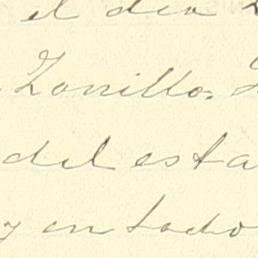 el dia
Zorrillo.
del esta
y en todo